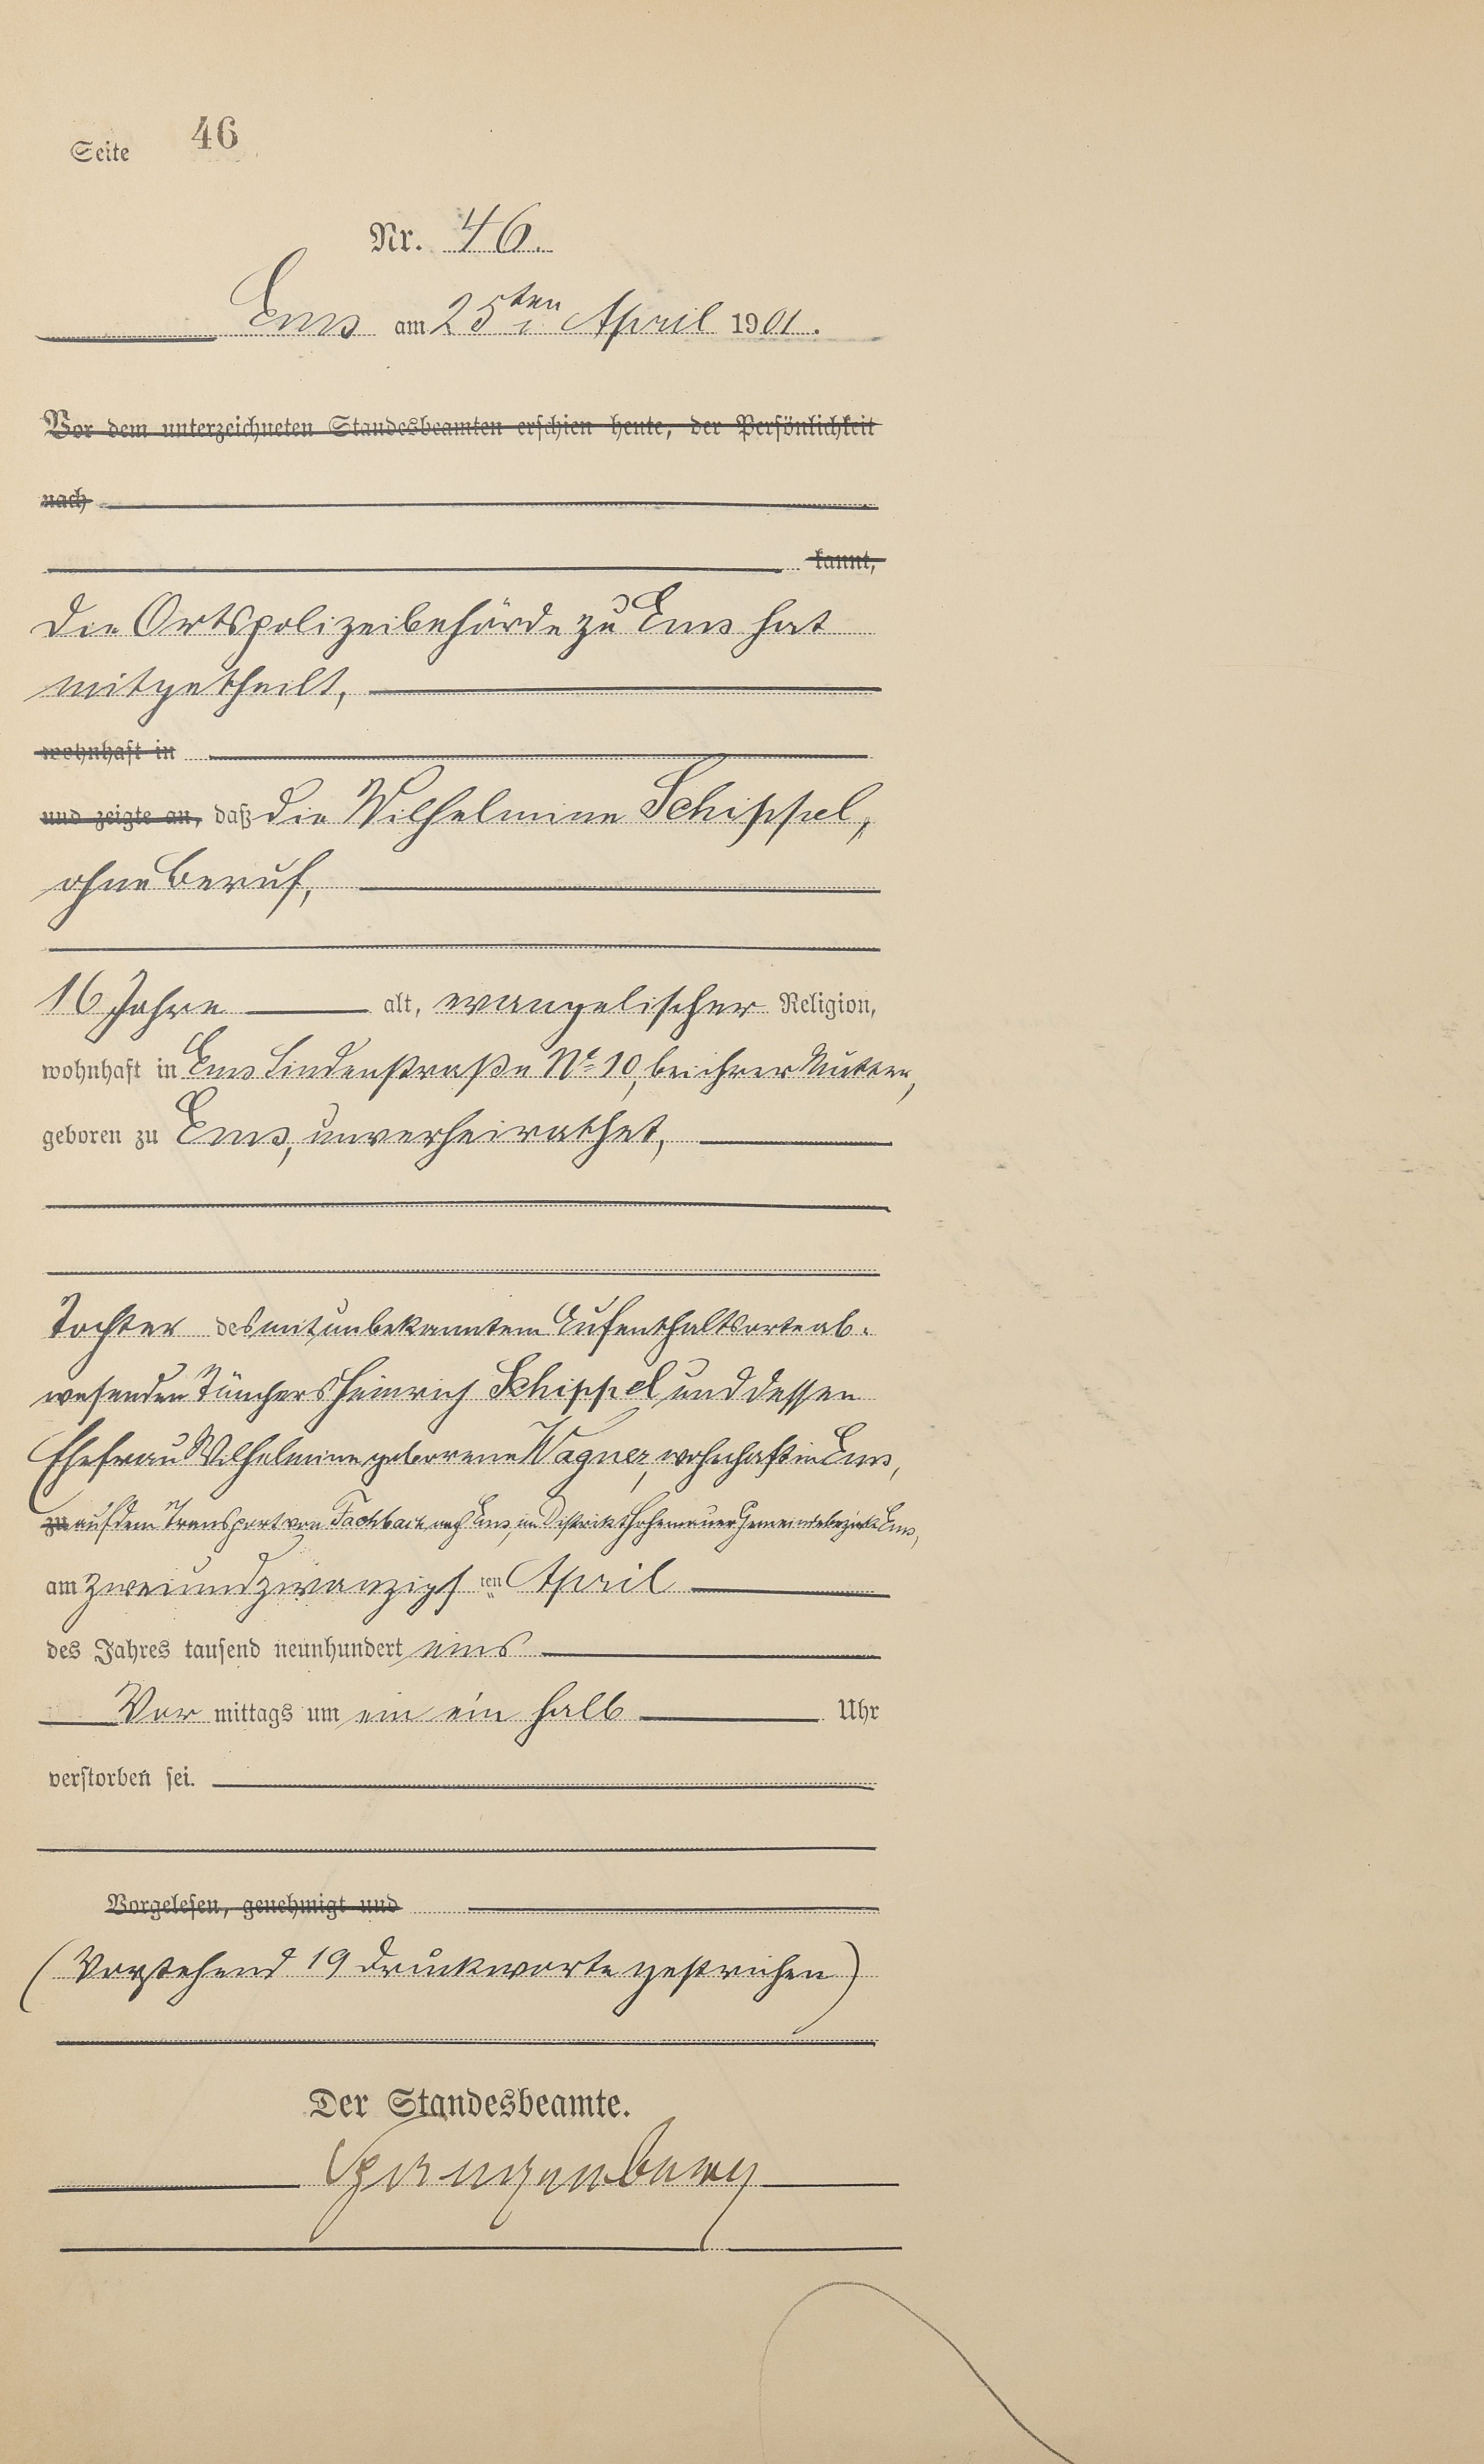 Seite 46
Nr. 46.
Ems am 25ten April 1901.
Vor dem unterzeichneten Standesbeamten erschien heute, der Persönlichkeit
nach
kannt,
Die Ortspolizeibehörde zu Ems hat
mitgetheilt,
wohnhaft in
und zeigte an, daß die Wilhelmine Schippel,
ohne Beruf,
16 Jahre alt, evangelischer Religion,
wohnhaft in Ems Lindenstraße No 10, bei ihrer Mutter,
geboren zu Ems, unverheirathet,
Tochter des mit unbekanntem Aufenthaltsorte ab-
wesenden Tünchers Heinrich Schippel und dessen
Ehefrau Wilhelmine geborene Wagner, wohnhaft in Ems,
zu auf dem Transport von Fachbach nach Ems, im Distrikt Hohemauer Gemeindebezirk Ems,
am zweiundzwanzigs ten April
des Jahres tausend neunhundert eins
Vor mittags um ein ein halb Uhr
verstorben sei.
Vorgelesen, genehmigt und
(Vorstehend 19 Druckworte gestrichen)
Der Standesbeamte.